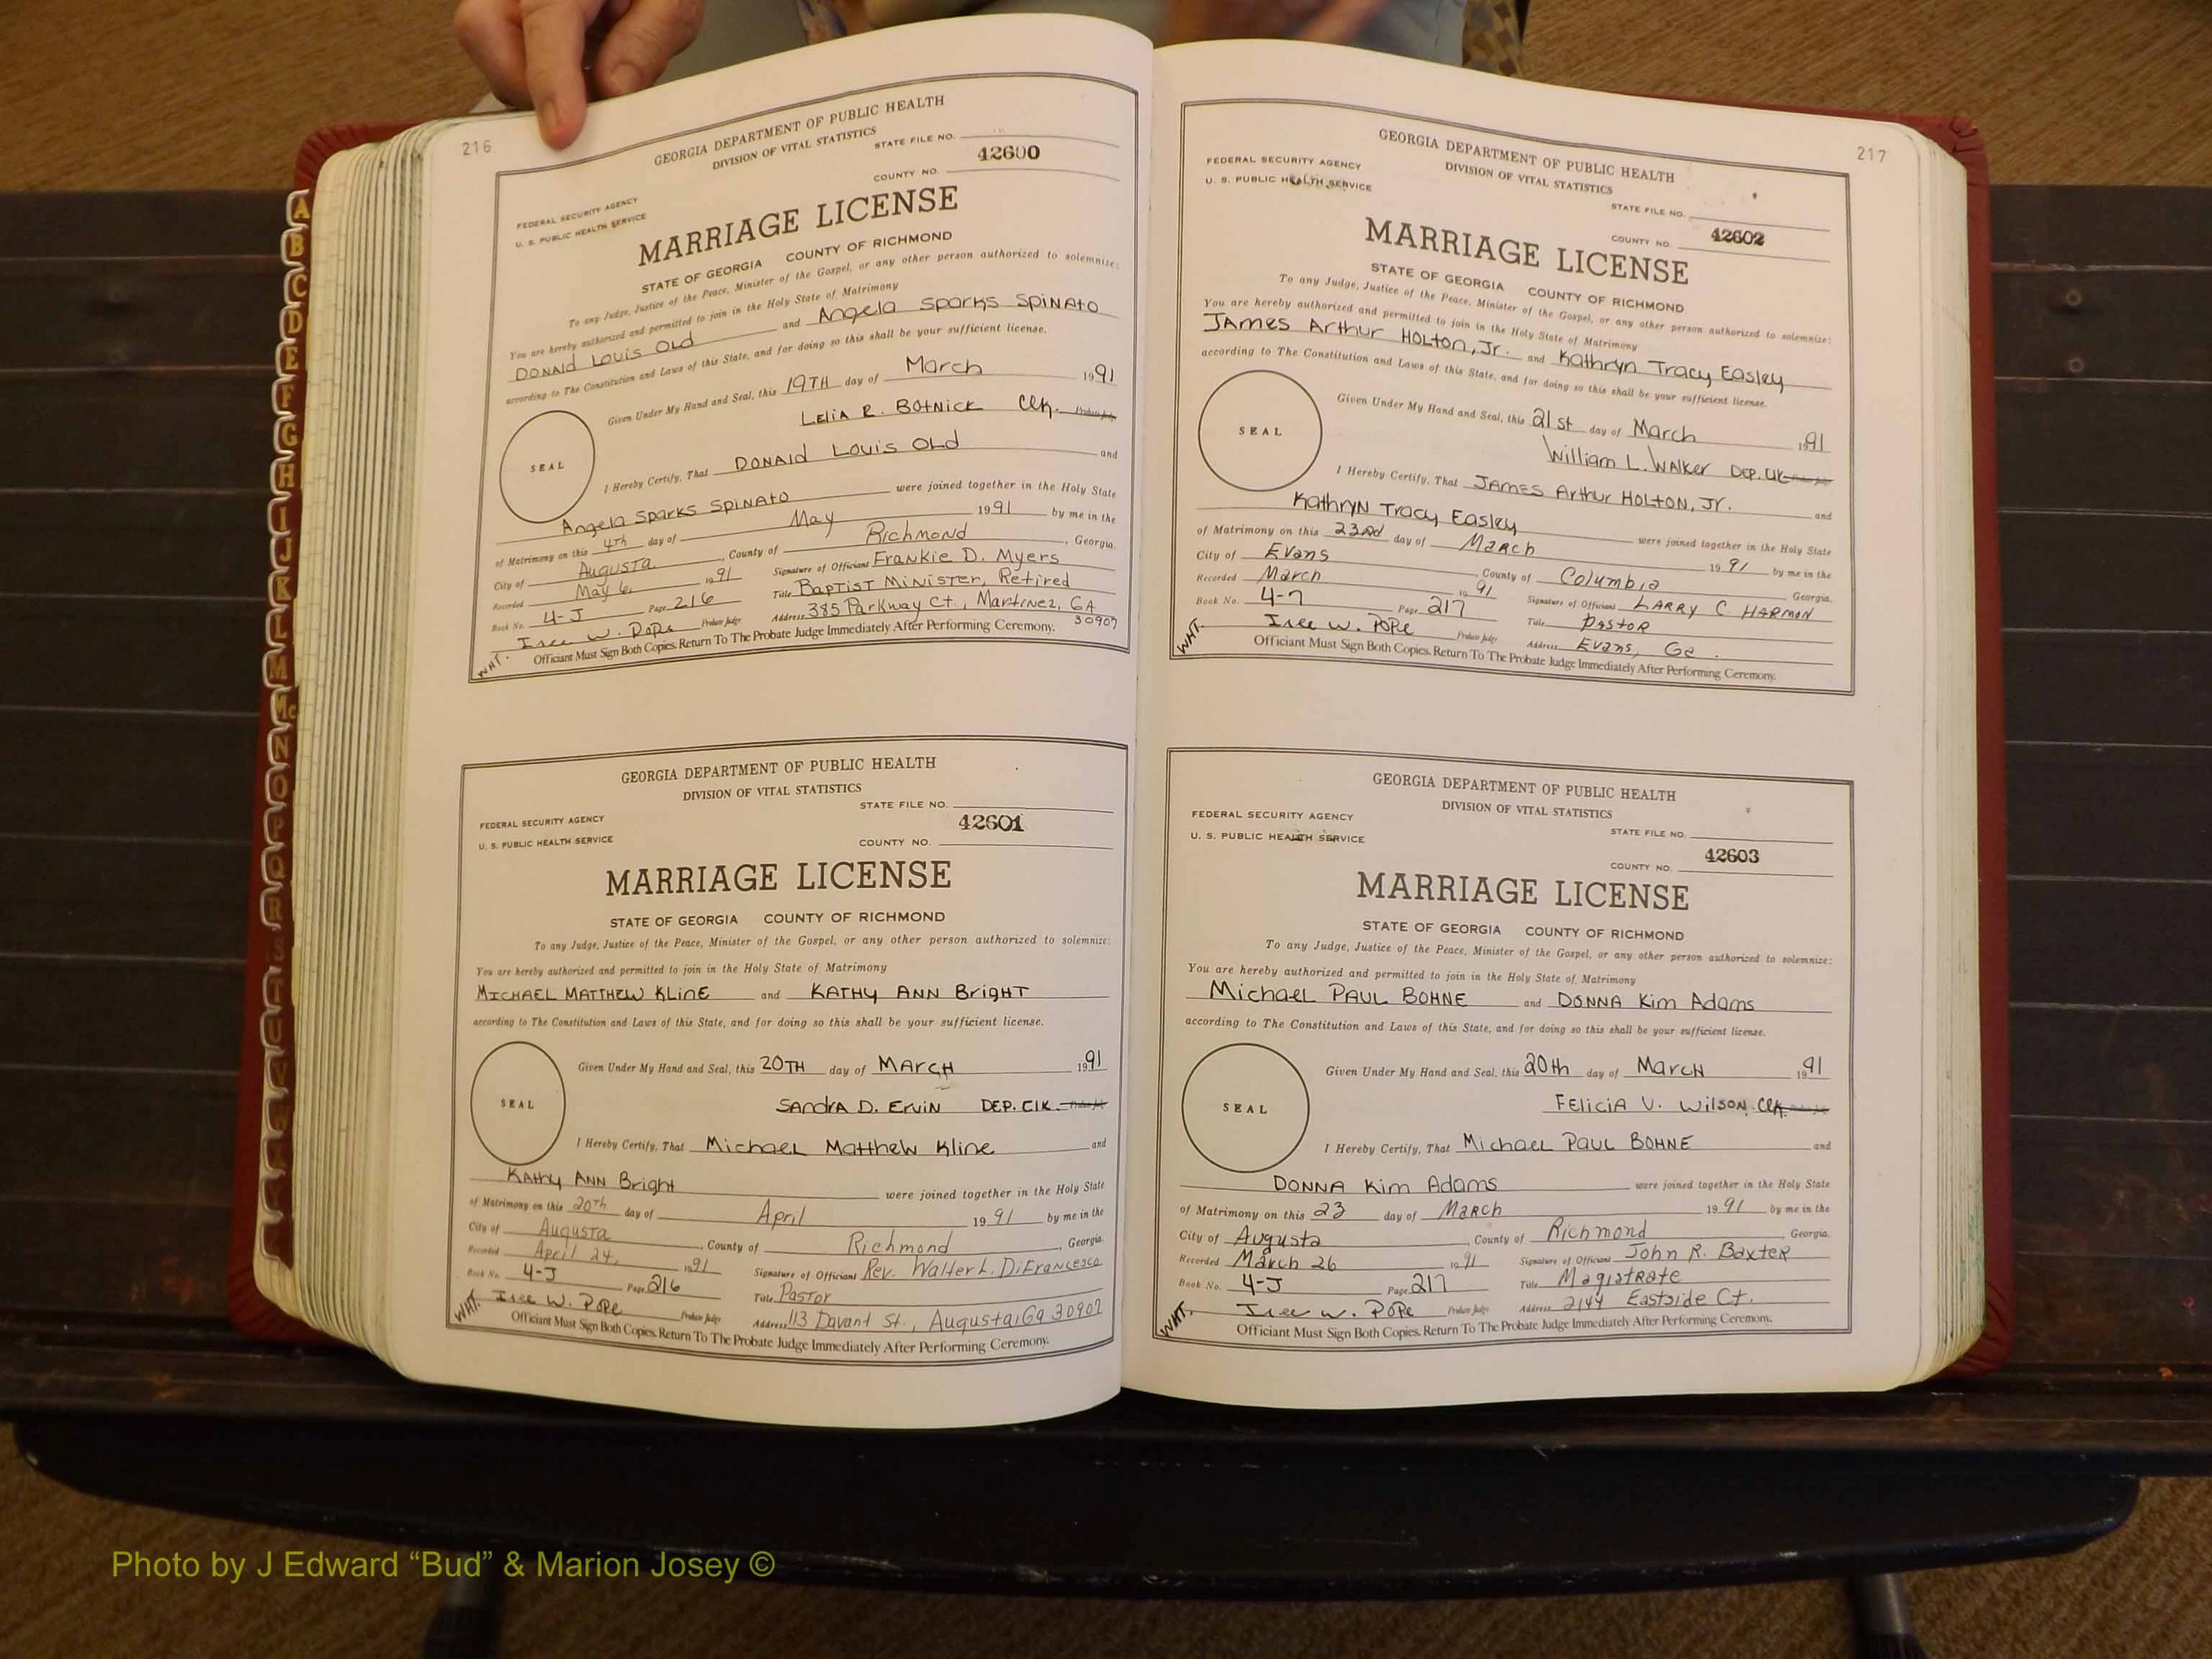 216
GEORGIA DEPARTMENT OF PUBLIC HEALTH
DIVISION OF VITAL STATISTICS
STATE FILE NO.
42600
COUNTY NO.
FEDERAL SECURITY AGENCY
U. S. PUBLIC HEALTH SERVICE
MARRIAGE LICENSE
STATE OF GEORGIA COUNTY OF RICHMOND
To any Judge, Justice of the Peace, Minister of the Gospel, or any other person authorized to solemnize:
You are hereby authorized and permitted to join in the Holy State of Matrimony
DONALD LOUIS OLD and Angela Sparks SPINAto
according to The Constitution and Laws of this State, and for doing so this shall be your sufficient license.
Given Under My Hand and Seal, this 19TH day of March 1991
LELIA R. BOTNICK CLK. Probate Judge
SEAL
I Hereby Certify, That DONALD LOUIS OLD and
Angela Sparks SPINAto were joined together in the Holy State
of Matrimony on this 4th day of May 1991 by me in the
City of Augusta, County of Richmond, Georgia.
Recorded May 6, 1991 Signature of Officiant Frankie D. Myers
Book No. 4-J Page 216 Title BAPTIST MINISTER, Retired
Isee W. POPe Probate Judge Address 385 Parkway Ct., Martinez, GA 30907
WHT. Officiant Must Sign Both Copies. Return To The Probate Judge Immediately After Performing Ceremony.
GEORGIA DEPARTMENT OF PUBLIC HEALTH
DIVISION OF VITAL STATISTICS
STATE FILE NO.
FEDERAL SECURITY AGENCY
42601
U. S. PUBLIC HEALTH SERVICE
COUNTY NO.
MARRIAGE LICENSE
STATE OF GEORGIA COUNTY OF RICHMOND
To any Judge, Justice of the Peace, Minister of the Gospel, or any other person authorized to solemnize:
You are hereby authorized and permitted to join in the Holy State of Matrimony
MICHAEL MATTHEW KLINE and KATHY ANN BRIGHT
according to The Constitution and Laws of this State, and for doing so this shall be your sufficient license.
Given Under My Hand and Seal, this 20TH day of MARCH 1991
SANDRA D. ERVIN DEP. CLK. Probate Judge
SEAL
I Hereby Certify, That Michael Matthew Kline and
KAthy ANN Bright were joined together in the Holy State
of Matrimony on this 20th day of April 1991 by me in the
City of Augusta, County of Richmond, Georgia.
Recorded April 24, 1991 Signature of Officiant Rev. Walter L. DiFrancesco
Book No. 4-J Page 216 Title Pastor
Isee W. POPe Probate Judge Address 113 Davant St., Augusta, Ga 30907
WHT. Officiant Must Sign Both Copies. Return To The Probate Judge Immediately After Performing Ceremony.
217
GEORGIA DEPARTMENT OF PUBLIC HEALTH
DIVISION OF VITAL STATISTICS
FEDERAL SECURITY AGENCY
U. S. PUBLIC HEALTH SERVICE
STATE FILE NO.
COUNTY NO. 42602
MARRIAGE LICENSE
STATE OF GEORGIA COUNTY OF RICHMOND
To any Judge, Justice of the Peace, Minister of the Gospel, or any other person authorized to solemnize:
You are hereby authorized and permitted to join in the Holy State of Matrimony
JAMES Arthur HOLTON, Jr. and Kathryn Tracy Easley
according to The Constitution and Laws of this State, and for doing so this shall be your sufficient license.
Given Under My Hand and Seal, this 21st day of March 1991
William L. Walker DEP. CLK Probate Judge
SEAL
I Hereby Certify, That JAMES Arthur HOLTON, JR. and
Kathryn Tracy Easley were joined together in the Holy State
of Matrimony on this 23rd day of March 1991 by me in the
City of Evans, County of Columbia Georgia.
Recorded March 1991 Signature of Officiant LARRY C. HARMON
Book No. 4-J Page 217 Title Pastor
Isee W. POPe Probate Judge Address Evans, Ga.
WHT. Officiant Must Sign Both Copies. Return To The Probate Judge Immediately After Performing Ceremony.
GEORGIA DEPARTMENT OF PUBLIC HEALTH
DIVISION OF VITAL STATISTICS
FEDERAL SECURITY AGENCY
STATE FILE NO.
U. S. PUBLIC HEALTH SERVICE
42603
COUNTY NO.
MARRIAGE LICENSE
STATE OF GEORGIA COUNTY OF RICHMOND
To any Judge, Justice of the Peace, Minister of the Gospel, or any other person authorized to solemnize:
You are hereby authorized and permitted to join in the Holy State of Matrimony
Michael PAUL BOHNE and DONNA Kim Adams
according to The Constitution and Laws of this State, and for doing so this shall be your sufficient license.
Given Under My Hand and Seal, this 20th day of March 1991
FELICIA V. WILSON, CLK.
SEAL
I Hereby Certify, That Michael Paul BOHNE and
DONNA Kim Adams were joined together in the Holy State
of Matrimony on this 23 day of March 1991 by me in the
City of Augusta, County of Richmond, Georgia.
Recorded March 26 1991 Signature of Officiant John R. Baxter
Book No. 4-J Page 217 Title Magistrate
Isee W. POPe Probate Judge Address 2144 Eastside Ct.
WHT. Officiant Must Sign Both Copies. Return To The Probate Judge Immediately After Performing Ceremony.
A
B
C
D
E
F
G
H
I
J
K
L
M
Mc
N
O
P
Q
R
S
T
U
V
W
Photo by J Edward “Bud” & Marion Josey ©